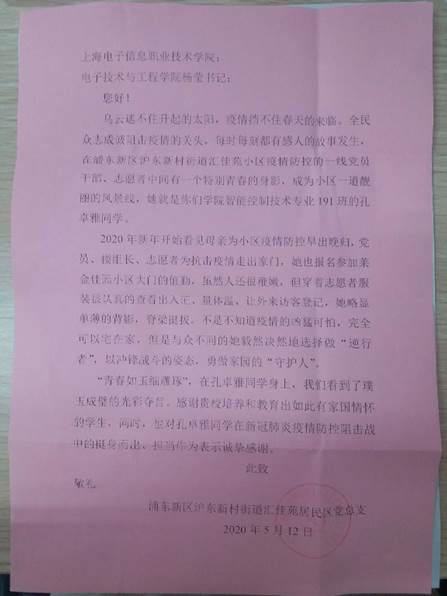 上海电子信息职业技术学院:
电子技术与工程学院杨莹书记:
您好!
乌云遮不住升起的太阳,疫情挡不住春天的来临。全民
众志成城阻击疫情的关头,每时每刻都有感人的故事发生,
在浦东新区沪东新村街道汇佳苑小区疫情防控的一线党员
干部、志愿者中间有一个特别青春的身影,成为小区一道靓
丽的风景线,她就是你们学院智能控制技术专业191班的孔
卓雅同学。
2020年新年开始看见母亲为小区疫情防控早出晚归,党
员、楼组长、志愿者为抗击疫情走出家门,她也报名参加莱
金佳园小区大门的值勤,虽然人还很稚嫩,但穿着志愿者服
装很认真的查看出入证、量体温,让外来访客登记,她略显
单薄的背影,脊梁挺拔。不是不知道疫情的凶猛可怕,完全
可以宅在家,但是与众不同的她毅然决然地选择做“逆行
者”,以冲锋战斗的姿态,勇做家园的“守护人”。
“青春如玉细雕琢”,在孔卓雅同学身上,我们看到了璞
玉成璧的光彩夺目。感谢贵校培养和教育出如此有家国情怀
的学生,同时,是对孔卓雅同学在新冠肺炎疫情防控阻击战
中的挺身而出、担当作为表示诚挚感谢。
此致
敬礼
浦东新区沪东新村街道汇佳苑居民区党总支
2020年5月12日